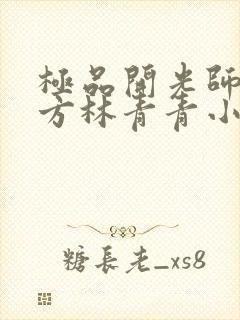 極品開光師
方林青青小
糖長老_xs8